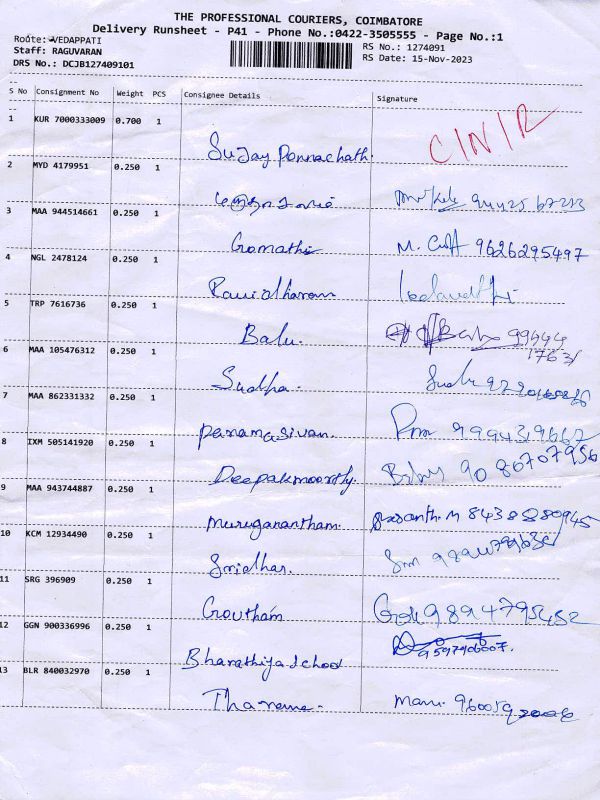 THE PROFESSIONAL COURIERS, COIMBATORE
Delivery Runsheet - P41 - Phone No.:0422-3505555 - Page No.:1
Route: VEDAPPATI
Staff: RAGUVARAN
DRS No.: DCJB127409101
RS No.: 1274091
RS Date: 15-Nov-2023
S No Consignment No Weight PCS Consignee Details Signature
1 KUR 7000333009 0.700 1
Sujay Ponnachath. C/N/R
2 MYD 4179951 0.250 1
3 MAA 944514661 0.250 1
Gomathi M. 9626295497
4 NGL 2478124 0.250 1
5 TRP 7616736 0.250 1
Balu. 99444
1763/
6 MAA 105476312 0.250 1
Sudha.
7 MAA 862331332 0.250 1
Paramasivan.
8 IXM 505141920 0.250 1
Deepakmoorthy.
9 MAA 943744887 0.250 1
Muruganantham. 8438280945
10 KCM 12934490 0.250 1
Sridhar.
11 SRG 396909 0.250 1
Goutham 9894795452
12 GGN 900336996 0.250 1
Bharathiya School
13 BLR 840032970 0.250 1